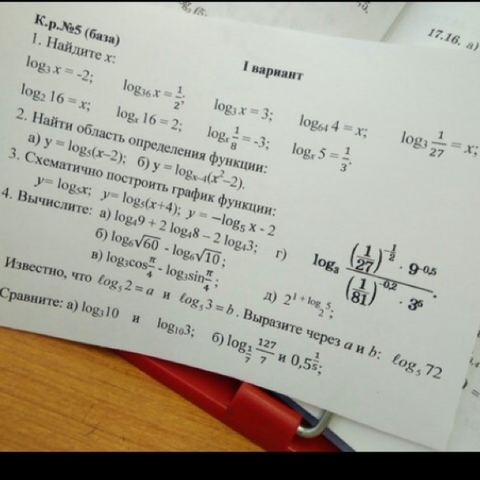 К.р.№5 (база)
I вариант
17.16. а)
1. Найдите x:
log₃ x = -2; log₃₆ x = 1/2; log₃ x = 3; log₆₄ 4 = x; log₃ 1/27 = x;
log₂ 16 = x; logₓ 16 = 2; logₓ 1/8 = -3; logₓ 5 = 1/3.
2. Найти область определения функции:
а) y = log₅(x–2); б) y = logₓ₋₄(x²–2).
3. Схематично построить график функции:
y= log₅x; y= log₅(x+4); y = −log₅ x - 2
4. Вычислите: а) log₄9 + 2 log₄8 – 2 log₄3;
б) log₆√60 - log₆√10;
в) log₃cos π/4 - log₃sin π/4;
г) log₃ ((1/27)^(-1/2) · 9^(-0,5)) / ((1/81)^(-0,2) · 3⁶).
д) 2^(1 + log₂ 5);
Известно, что log₅ 2 = a и log₅ 3 = b. Выразите через a и b: log₅ 72
Сравните: а) log₃10 и log₁₀3; б) log_(1/7) 127/7 и 0,5^(1/5);